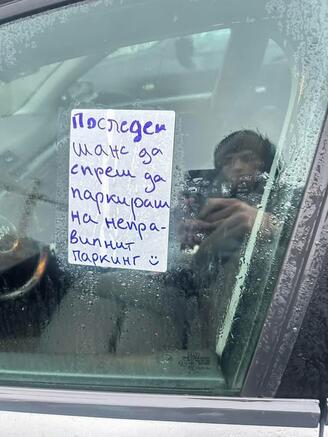 Последен
шанс да
спреш да
паркираш
на непра-
випнит
паркинг :)